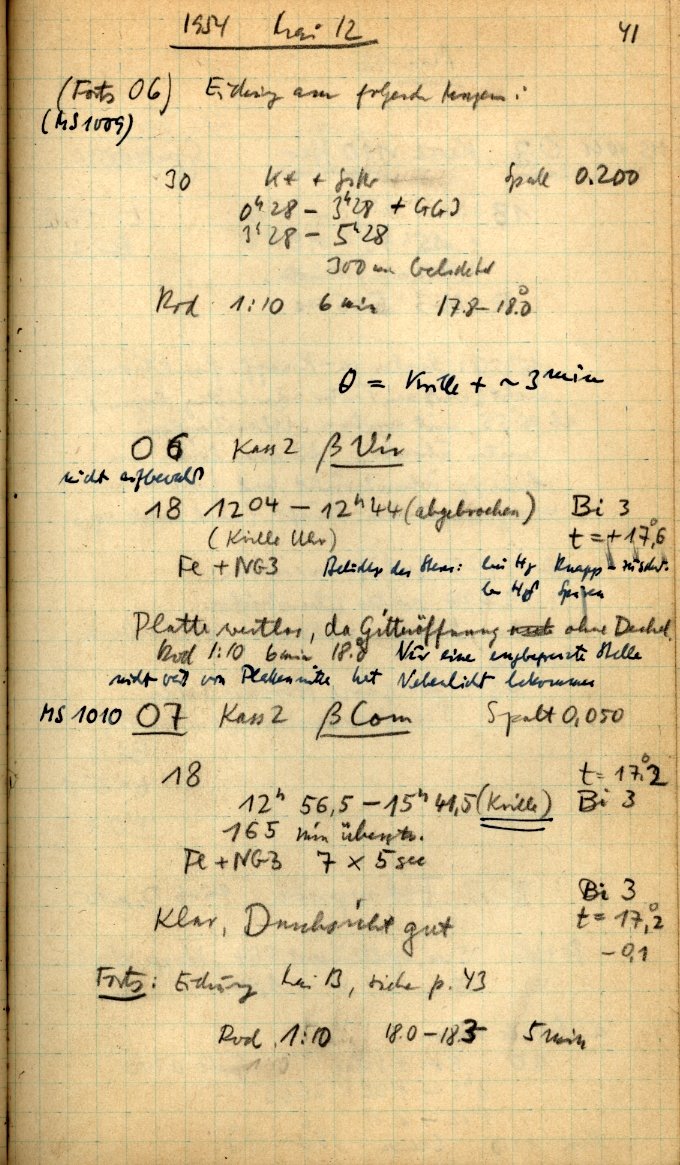 1954 Mai 12
41
(Forts 06) Eichung am folgende Morgen:
(MS 1009)
30 K+ + Gitter Spalt 0.200
0ʰ28 – 3ʰ28 + GG3
3ʰ28 – 5ʰ28
300 belichtet
Rod 1:10 6 min 17.8–18.0°
θ = Krille + ~ 3 min
06 Kass 2 β Vir
nicht aufbewahrt
18 12 04 – 12ʰ44 (abgebrochen) Bi 3
(Krille Uhr) t = +17,°6
Fe + NG3 des Sterns: bei Hγ Knapp
bei Hδ
Platte wertlos, da Gitteröffnung ohne Deckel
Rod 1:10 6 min 18.8° Nur eine engbegrenzte Stelle
nicht weit von Plattenmitte hat Nebenlicht bekommen
MS 1010 07 Kass 2 β Com Spalt 0,050
18 t = 17.°2
12ʰ 56,5 – 15ʰ 41,5 (Krille) Bi 3
165 min
Fe + NG3 7 × 5 sec
Bi 3
Klar, Durchsicht gut t = 17,°2
– 0,1
Forts: Eichung Mai 13, siehe p. 43
Rod 1:10 18.0 – 18.3 5 min